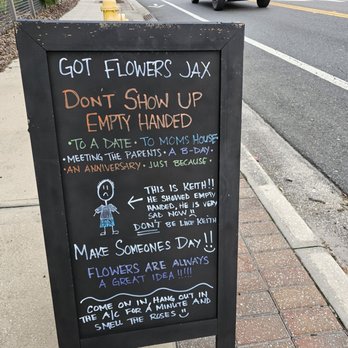 GOT FLOWERS JAX
DON'T SHOW UP
EMPTY HANDED
• TO A DATE • TO MOMS HOUSE •
• MEETING THE PARENTS • A B-DAY •
• AN ANNIVERSARY • JUST BECAUSE •
THIS IS KEITH!!
HE SHOWED EMPTY
HANDED, HE IS VERY
SAD NOW!!
DON'T BE LIKE KEITH
MAKE SOMEONES DAY!!
FLOWERS ARE ALWAYS
A GREAT IDEA!!!!!
COME ON IN, HANG OUT IN
THE A/C FOR A MINUTE AND
SMELL THE ROSES